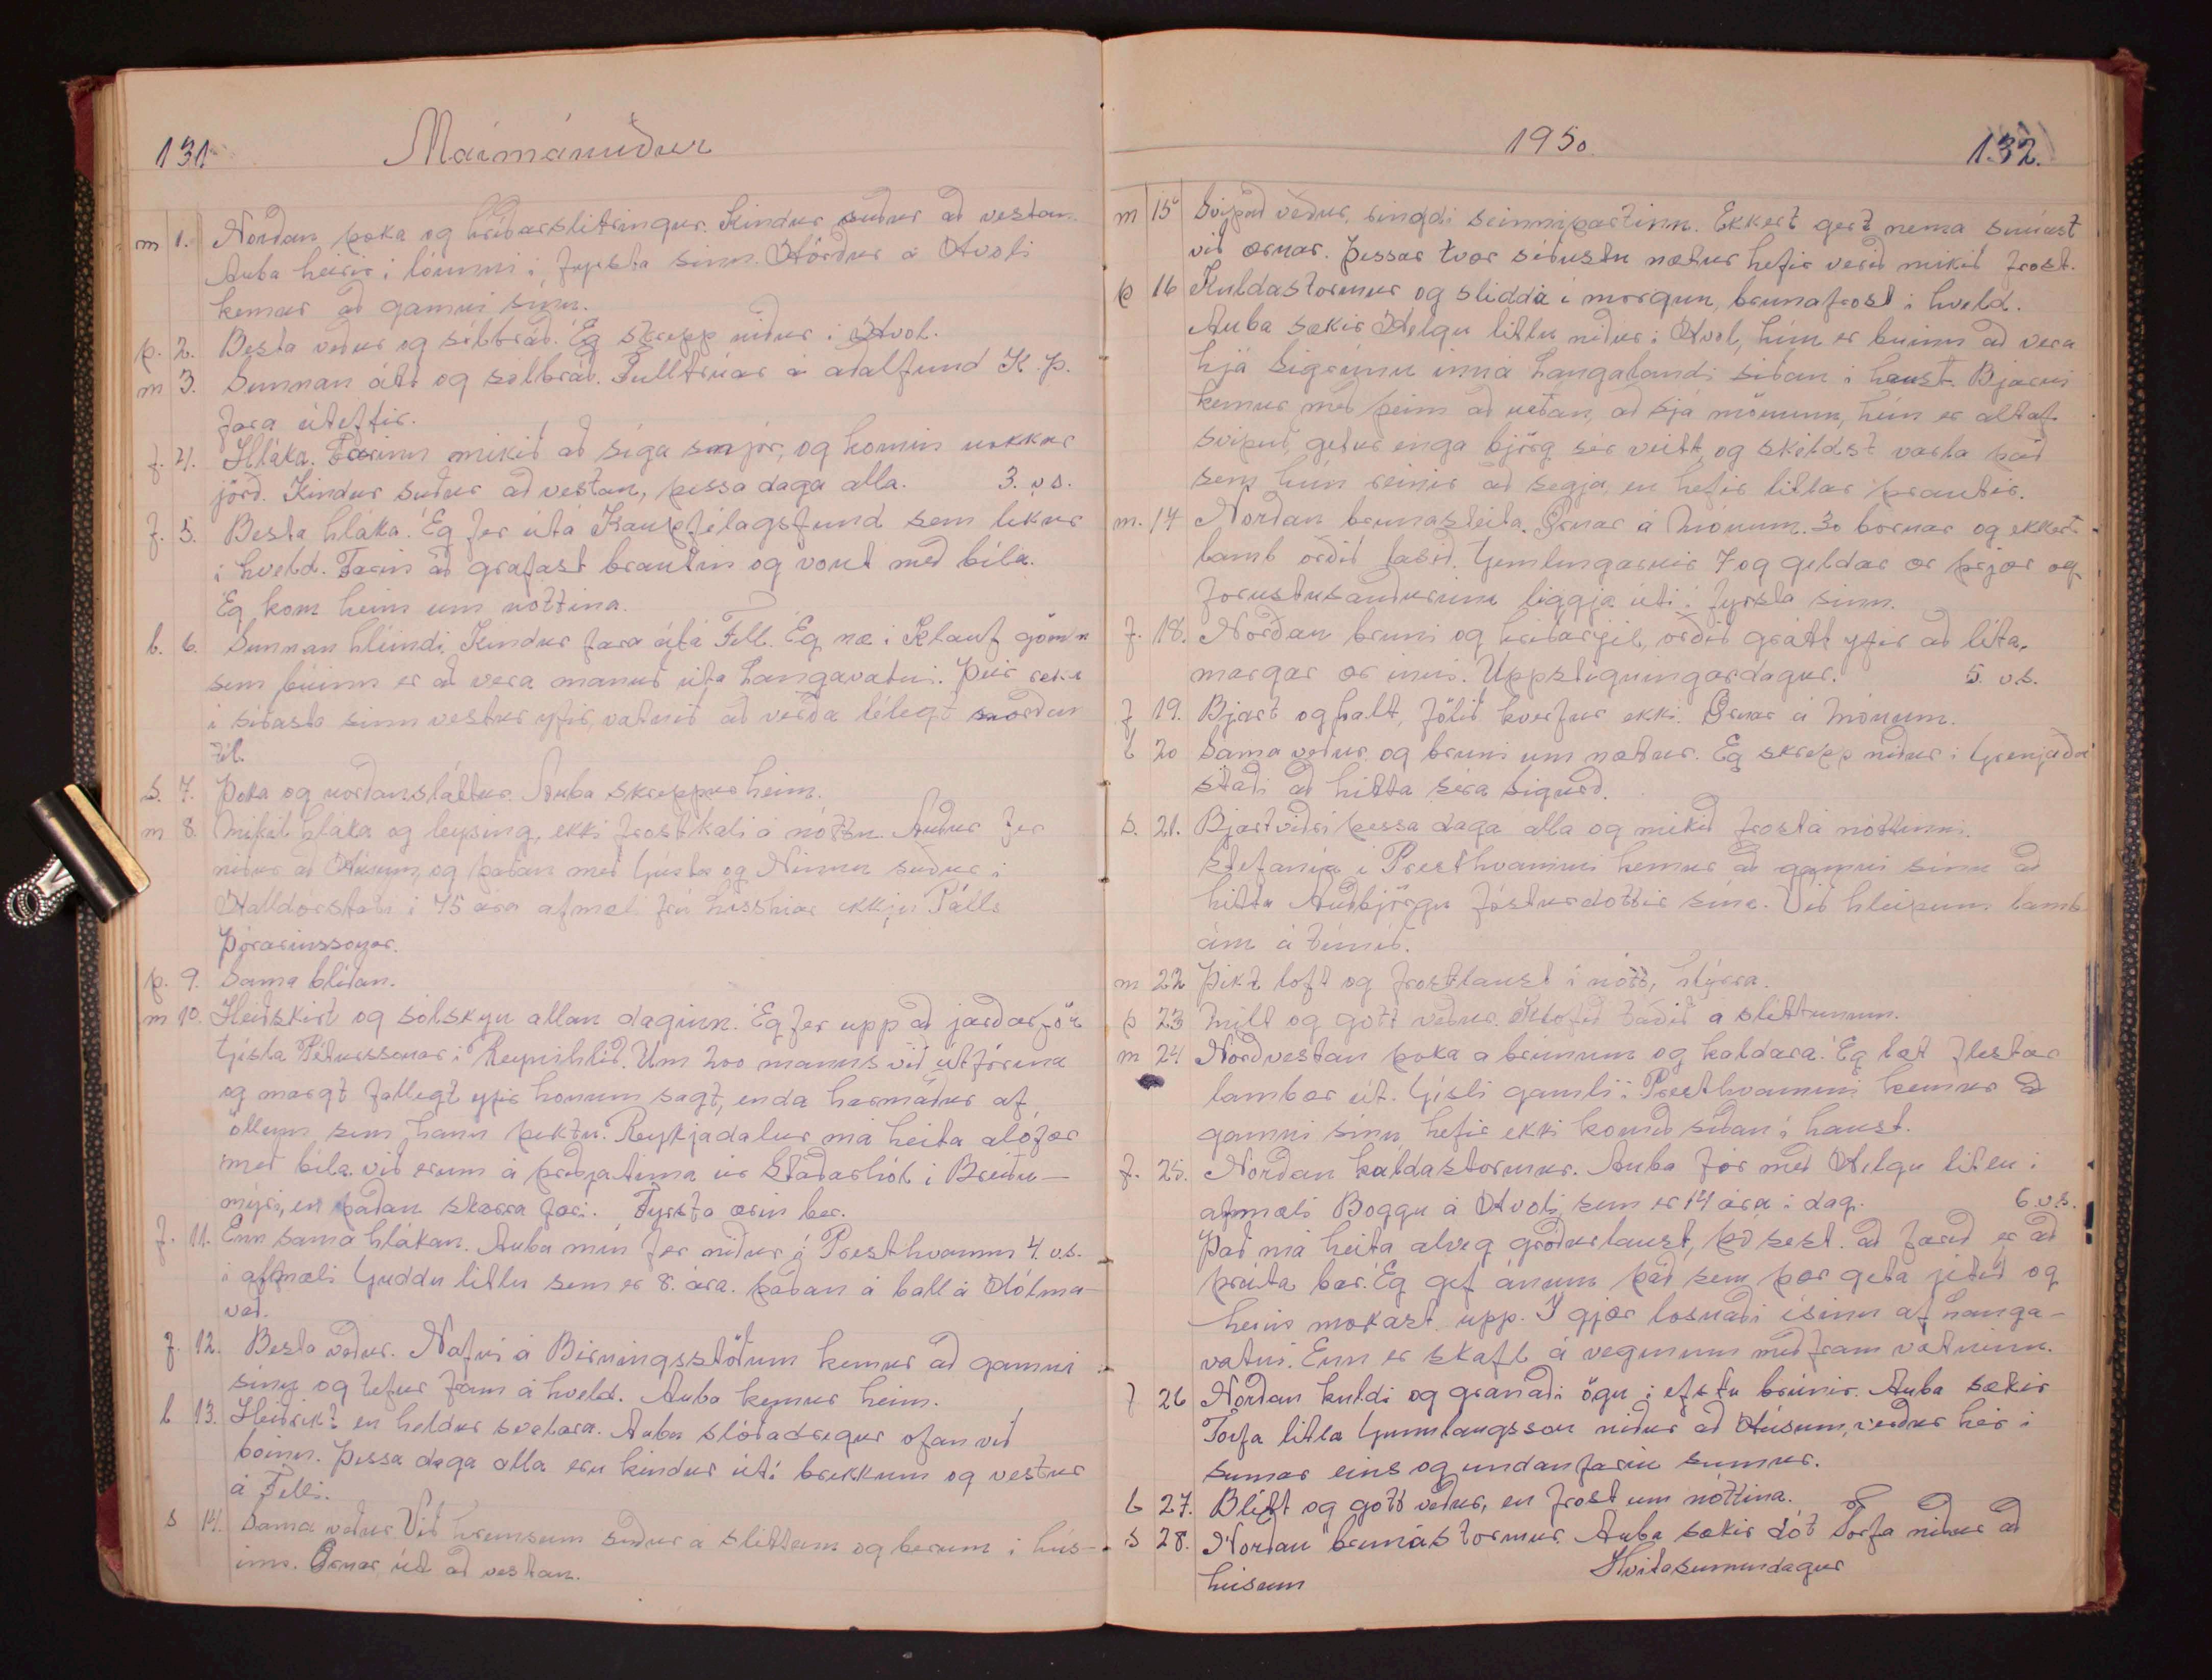 131
Maímánuður
m 1. Norðan þoka og hríðarslitringur. Kindur suður að vestan.
Auba heirir í lóunni í fyrsta sinn. Hörður á Hvoli
kemur að gamni sínu.
þ. 2. Besta veður og sólbráð. Ég skrepp niður í Hvol.
m 3. Sunnan átt og sólbráð. Fulltrúar á aðalfund K.Þ.
fara úteftir.
f. 4. Hláka. Farinn mikið að síga snjór, og komin nokkur
jörð. Kindur suður að vestan, þessa daga alla. 3. v.s.
f. 5. Besta hláka. Ég fer útá Kaupfélagsfund sem líkur
í kveld. Farin að grafast brautin og vont með bíla.
Ég kom heim um nóttina.
l. 6. Sunnan hlíindi. Kindur fara útá Fell. Ég næ í Klauf
sem búinn er að vera mánuð úta Langavatni. Þeir
í síðasta sinn vestur yfir, vatnið að verða lélegt norðan
til.
S. 7. Þoka og norðansláttur. Auba skreppur heim.
m 8. Mikil hláka og leysing, ekki frostkali á nóttu. Auður fer
niður að Húsum, og þaðan með Gústa og Ninnu suður í
Halldórstaði í 75 ára afmæli frú Lisshiar ekkju Páls
Þórarinssonar.
þ. 9. Sama blíðan.
m 10. Heiðskírt og sólskyn allan daginn. Ég fer upp að jarðarför
Gísla Péturssonar í Reynihlíð. Um 200 manns við útförina
og margt fallegt yfir honum sagt, enda harmaður af
öllum sem hann þektu. Reykjadalur má heita alófær
með bíla. við erum á þriðjatíma úr Staðarhól í Breiðu-
mýri, en þaðan skárra færi. Fyrsta ærin ber.
f. 11. Enn sama hlákan. Auba mín fer niður á Presthvamm 4. v.s.
í afmæli Guddu litlu sem er 8. ára. þaðan á ball á Hólma-
vað.
f. 12. Besta veður. Nafni á Birningsstöðum kemur að gamni
sínu og tefur fram á kveld. Auba kemur heim.
l 13. Heiðríkt en heldur svalara. Auba slóðadregur ofan við
bæinn. Þessa daga alla eru kindur úti í brekkum og vestur
á Felli.
s 14. Sama veður Við hreinsum suður á sléttum og berum í hús-
inn. Ærnar út að vestan.
1950.
132.
m 15 Svipað veður, ringdi seinnipartinn. Ekkert gert nema snúast
við ærnar. Þessar tvær síðustu nætur hefir verið mikið frost.
þ 16 Kuldastormur og slidda í morgun, brunafrost í kveld.
Auba sækir Helgu litlu niður í Hvol, hún er búinn að vera
hjá Sigrúnu inná Langalandi síðan í haust. Bjarni
kemur með þeim að neðan, að sjá mömmu, hún er altaf
svipuð, getur enga björg sér veitt og skildst varla það
sem hún reinir að segja, en hefir litlar þrautir.
m. 17 Norðan brunasteita. Ærnar á Mónum. 30 bornar og ekkert
lamb orðið lasið. Gemlingarnir 7 og geldar ær þrjár og
forustusauðurinn liggja úti í fyrsta sinn.
f. 18. Norðan bruni og hríðarjel, orðið grátt yfir að líta,
margar ær inni. Uppstigningardagur. 5. v.s.
f 19. Bjart og kalt, fölið hverfur ekki. Ærnar á Mónum.
l 20 Sama veður og bruni um nætur. Ég skrepp niður í Grenjaðar
staði að hitta séra Sigurð.
S. 21. Bjartviðri þessa daga alla og mikið frost á nóttinni.
Stefanía í Presthvammi kemur að gamni sínu að
hitta Auðbjörgu fósturdóttir sína. Við hleipum lamb
ám á túnið.
m 22 Þikt loft og frostlaust í nótt, hlýrra.
þ 23 Milt og gott veður. Klofið taðið á sléttunum.
m 24 Norðvestan þoka á brúnum og kaldara. Ég læt flestar
lambær út. Gísli gamli í Presthvammi kemur að
gamni sínu, hefir ekki komið síðan í haust.
f. 25. Norðan kaldastormur. Auba fór með Helgu litlu í
afmæli Boggu á Hvoli sem er 14 ára í dag. 6 v.s.
Það má heita alveg gróðurlaust, þó sést að farið er að
þrúta bar. Ég gef ánum það sem þær geta jetið og
heim mokast upp. Í gjær losnaði ísinn af Langa-
vatni. Enn er skafl á veginum meðfram vatninu.
f 26 Norðan kuldi og gránaði ögn í efstu brúnir. Auba sækir
Torfa litla Gunnlaugsson niður að Húsum, verður hér í
sumar eins og undanfarin sumur.
l 27. Blítt og gott veður, en frost um nóttina.
s 28. Norðan brunastormur. Auba sækir dót Torfa niður að
húsum Hvítasunnudagur